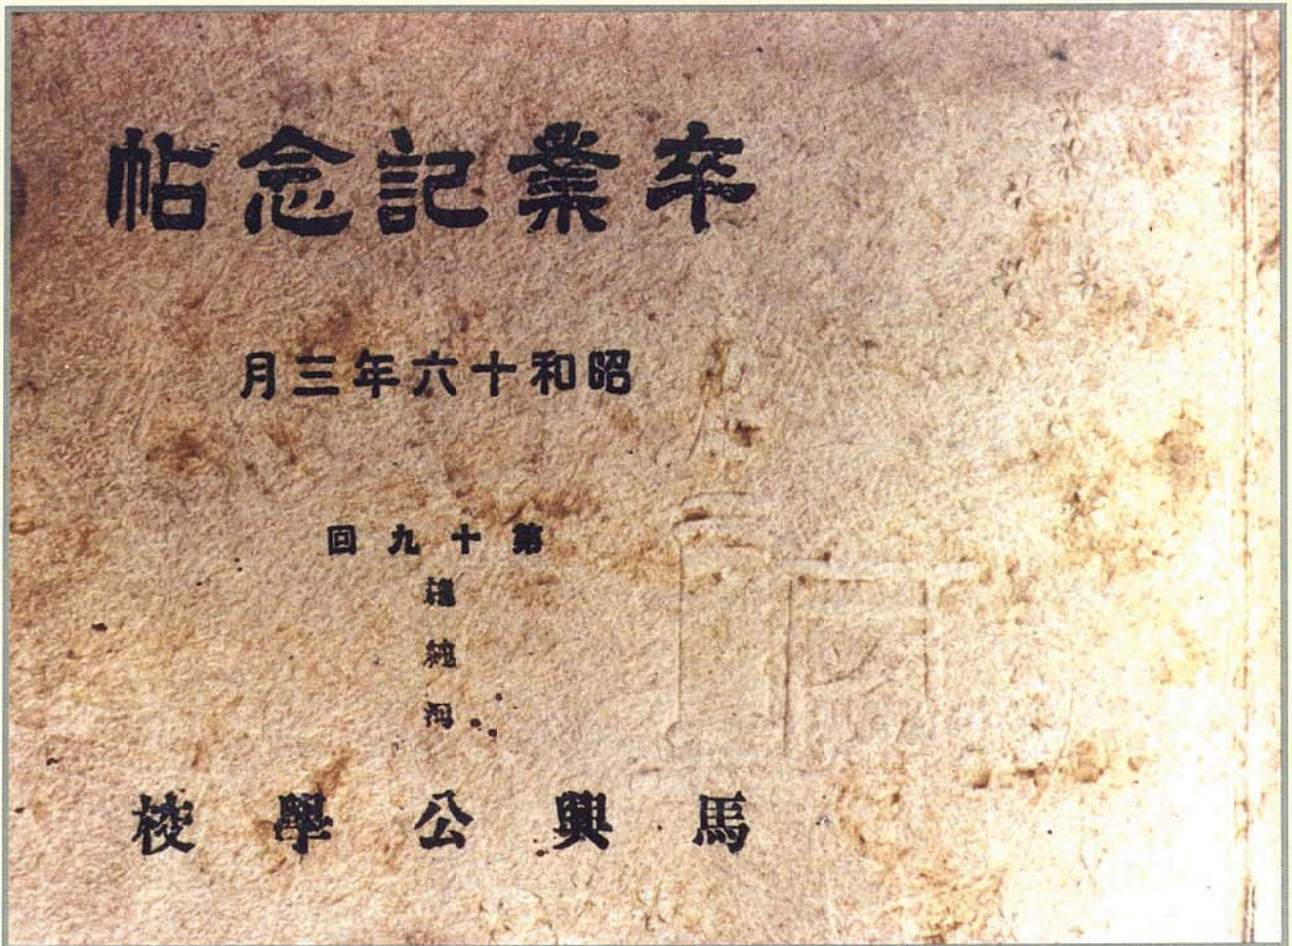 卒業記念帖
昭和十六年三月
第十九回
馬興公學校